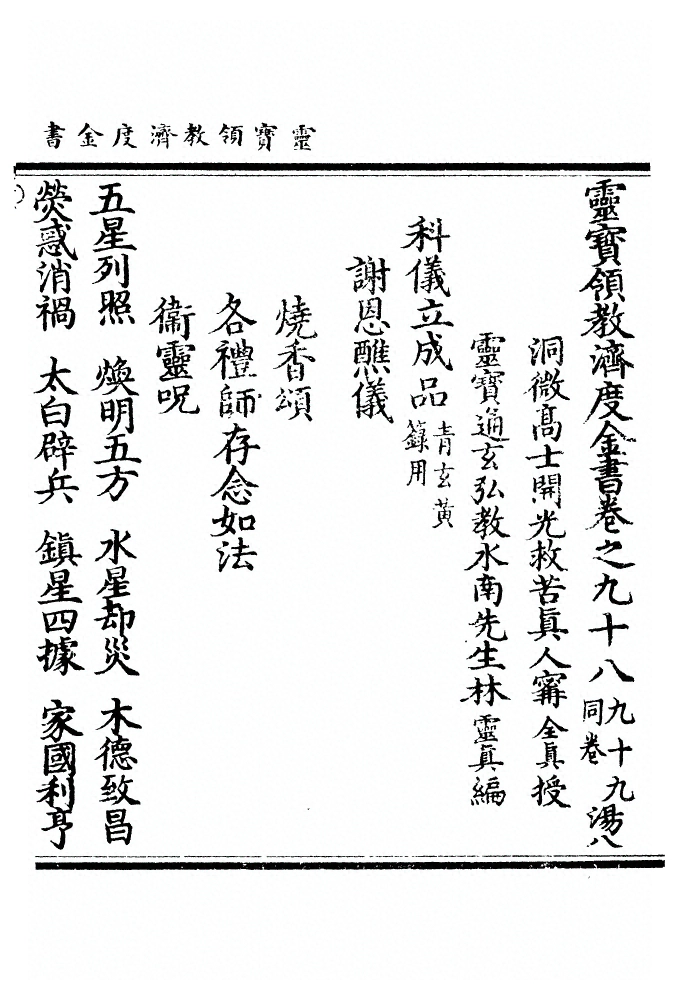 靈寶領教濟度金書
靈寶領教濟度金書卷之九十八 九十九同卷 湯八
洞微高士開光救苦眞人甯全真授
靈寶通玄弘教水南先生林靈眞編
科儀立成品 青玄黃籙用
謝恩醮儀
燒香頌
各禮師存念如法
衞靈呪
五星列照 煥明五方 水星却災 木德致昌
熒惑消禍 太白辟兵 鎮星四據 家國利亨